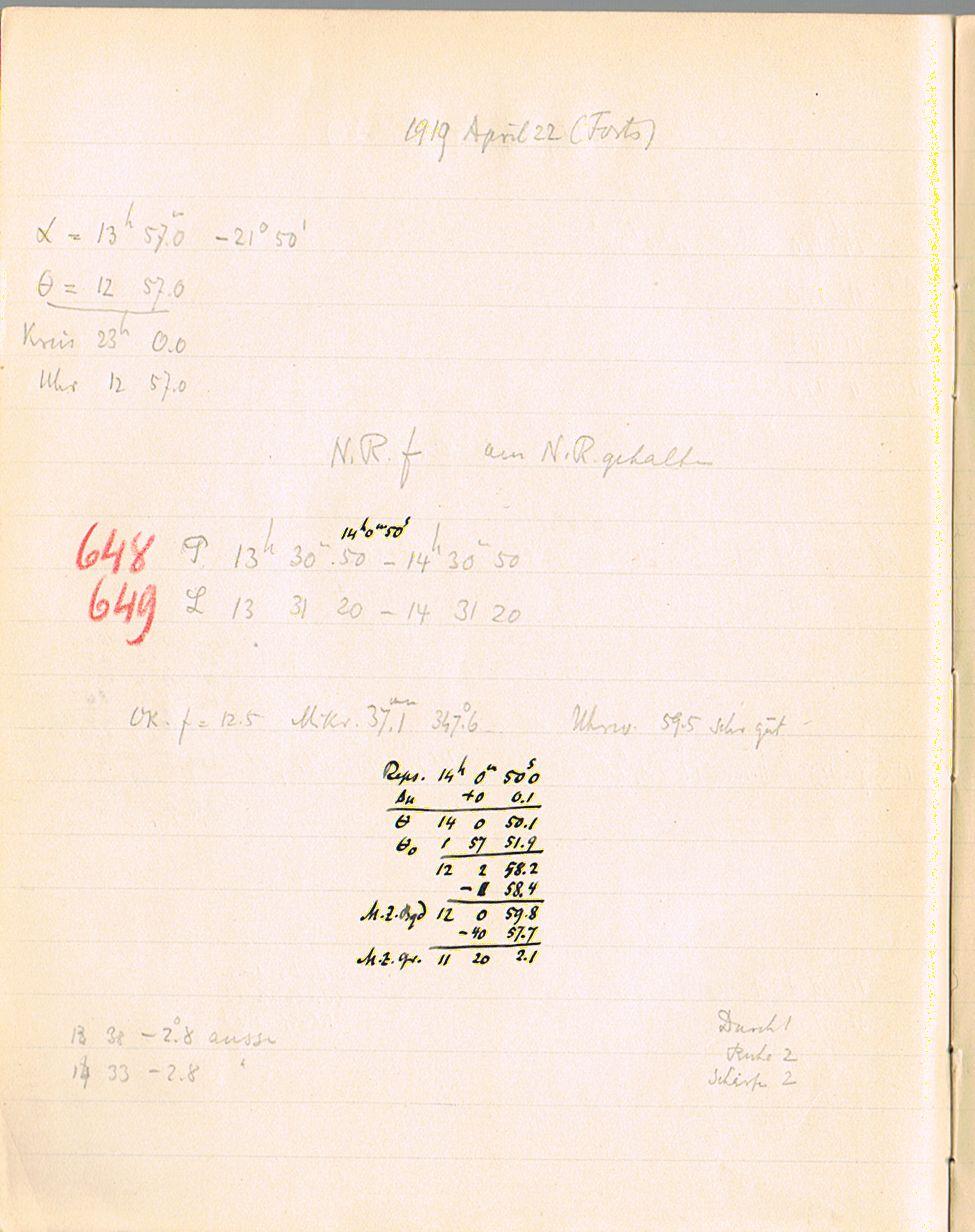 1919 April 22 (Forts)
α = 13ʰ 57ᵐ.0 -21° 50'
θ = 12 57.0
Kreis 23ʰ 0.0
Uhr 12 57.0
N.R. f am N.R. gehalten
14ʰ0ᵐ50ˢ
648 P. 13ʰ 30ᵐ.50 - 14ʰ 30ᵐ 50
649 L 13 31 20 - 14 31 20
OK. f = 12.5 Mikr. 37.1ᵐᵐ 347°.6 Uhrw. 59.5 sehr gut
Reps. 14ʰ 0ᵐ 50ˢ.0
Δu +0 0.1
θ 14 0 50.1
θ₀ 1 57 51.9
12 2 58.2
-1 58.4
M.Z. Bgd 12 0 59.8
-40 57.7
M.Z. gr. 11 20 2.1
13 38 -2°.8 aussen
14 33 -2.8 "
Durch 1
Ruhe 2
Schärfe 2